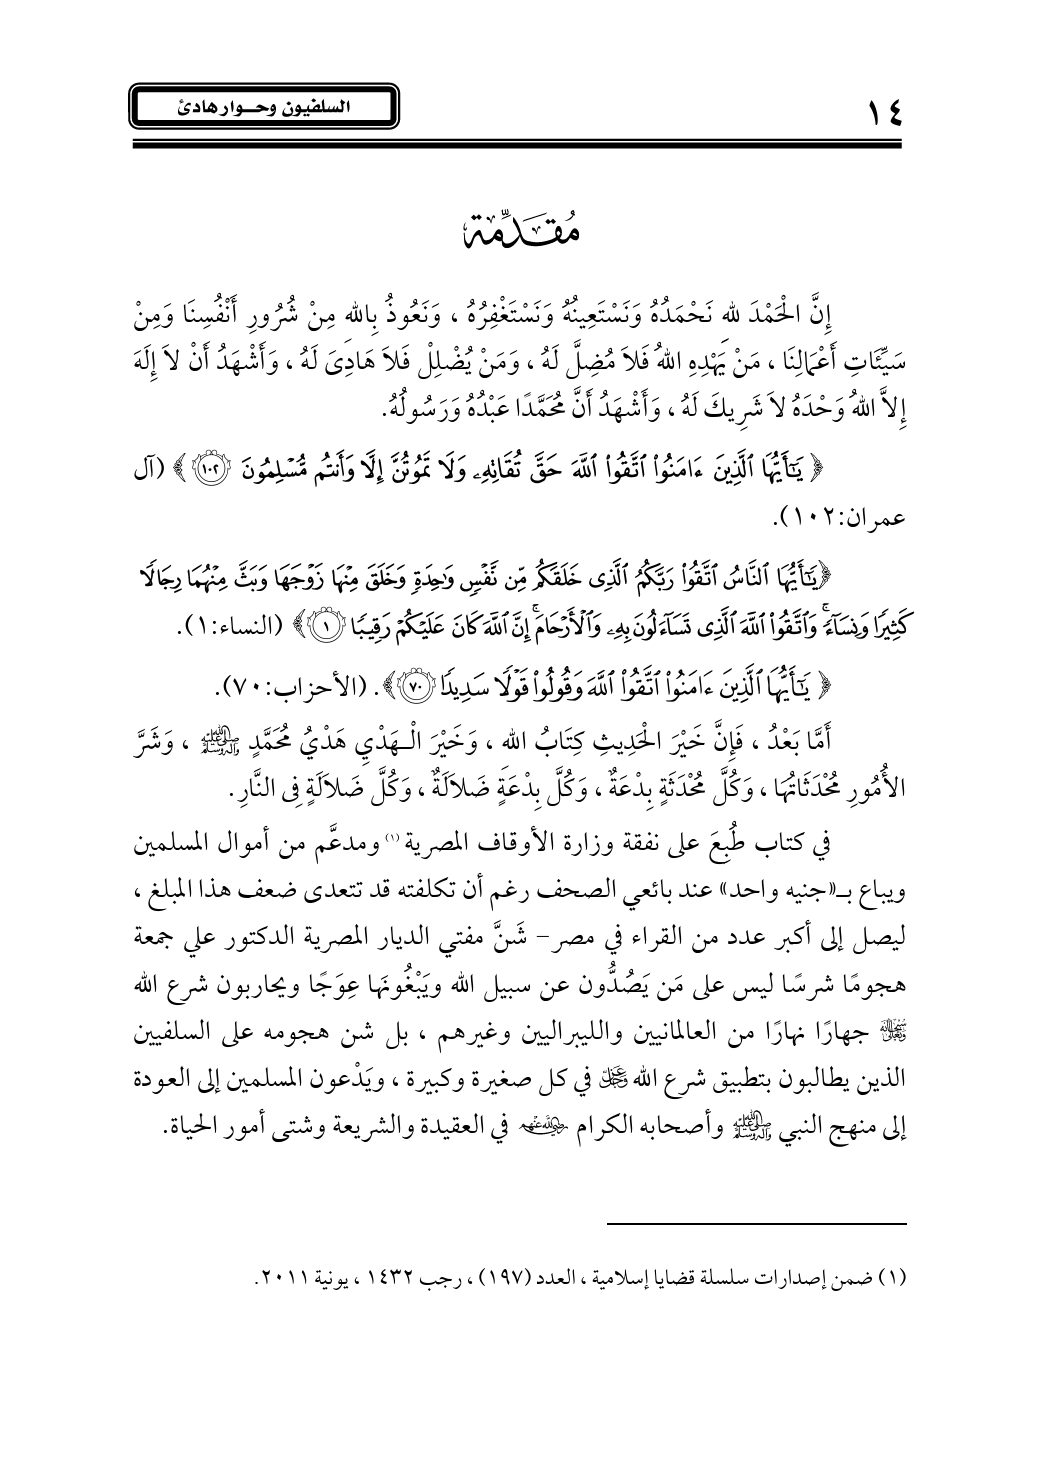 ١٤
السلفيون وحـوار هادئ
مُقَدِّمَة
إِنَّ الْحَمْدَ للهِ نَحْمَدُهُ وَنَسْتَعِينُهُ وَنَسْتَغْفِرُهُ ، وَنَعُوذُ بِاللهِ مِنْ شُرُورِ أَنْفُسِنَا وَمِنْ
سَيِّئَاتِ أَعْمَالِنَا ، مَنْ يَهْدِهِ اللهُ فَلاَ مُضِلَّ لَهُ ، وَمَنْ يُضْلِلْ فَلاَ هَادِىَ لَهُ ، وَأَشْهَدُ أَنْ لاَ إِلَهَ
إِلاَّ اللهُ وَحْدَهُ لاَ شَرِيكَ لَهُ ، وَأَشْهَدُ أَنَّ مُحَمَّدًا عَبْدُهُ وَرَسُولُهُ.
﴿ يَٰٓأَيُّهَا ٱلَّذِينَ ءَامَنُوا۟ ٱتَّقُوا۟ ٱللَّهَ حَقَّ تُقَاتِهِۦ وَلَا تَمُوتُنَّ إِلَّا وَأَنتُم مُّسْلِمُونَ ١٠٢ ﴾ (آل
عمران:١٠٢).
﴿يَٰٓأَيُّهَا ٱلنَّاسُ ٱتَّقُوا۟ رَبَّكُمُ ٱلَّذِى خَلَقَكُم مِّن نَّفْسٍ وَٰحِدَةٍ وَخَلَقَ مِنْهَا زَوْجَهَا وَبَثَّ مِنْهُمَا رِجَالًا
كَثِيرًا وَنِسَآءً ۚ وَٱتَّقُوا۟ ٱللَّهَ ٱلَّذِى تَسَآءَلُونَ بِهِۦ وَٱلْأَرْحَامَ ۚ إِنَّ ٱللَّهَ كَانَ عَلَيْكُمْ رَقِيبًا ١ ﴾ (النساء:١).
﴿ يَٰٓأَيُّهَا ٱلَّذِينَ ءَامَنُوا۟ ٱتَّقُوا۟ ٱللَّهَ وَقُولُوا۟ قَوْلًا سَدِيدًا ٧٠ ﴾. (الأحزاب:٧٠).
أَمَّا بَعْدُ ، فَإِنَّ خَيْرَ الْحَدِيثِ كِتَابُ اللهِ ، وَخَيْرَ الْـهَدْيِ هَدْيُ مُحَمَّدٍ ﷺ ، وَشَرَّ
الأُمُورِ مُحْدَثَاتُهَا ، وَكُلَّ مُحْدَثَةٍ بِدْعَةٌ ، وَكُلَّ بِدْعَةٍ ضَلاَلَةٌ ، وَكُلَّ ضَلاَلَةٍ فِى النَّارِ.
في كتاب طُبِعَ على نفقة وزارة الأوقاف المصرية (١) ومدعَّم من أموال المسلمين
ويباع بـ«جنيه واحد» عند بائعي الصحف رغم أن تكلفته قد تتعدى ضعف هذا المبلغ ،
ليصل إلى أكبر عدد من القراء في مصر– شَنَّ مفتي الديار المصرية الدكتور علي جمعة
هجومًا شرسًا ليس على مَن يَصُدُّون عن سبيل الله ويَبْغُونَها عِوَجًا ويحاربون شرع الله
ﷻ جهارًا نهارًا من العالمانيين والليبراليين وغيرهم ، بل شن هجومه على السلفيين
الذين يطالبون بتطبيق شرع الله عز وجل في كل صغيرة وكبيرة ، ويَدْعون المسلمين إلى العودة
إلى منهج النبي ﷺ وأصحابه الكرام رضي الله عنهم في العقيدة والشريعة وشتى أمور الحياة.
(١) ضمن إصدارات سلسلة قضايا إسلامية ، العدد (١٩٧) ، رجب ١٤٣٢ ، يونية ٢٠١١.